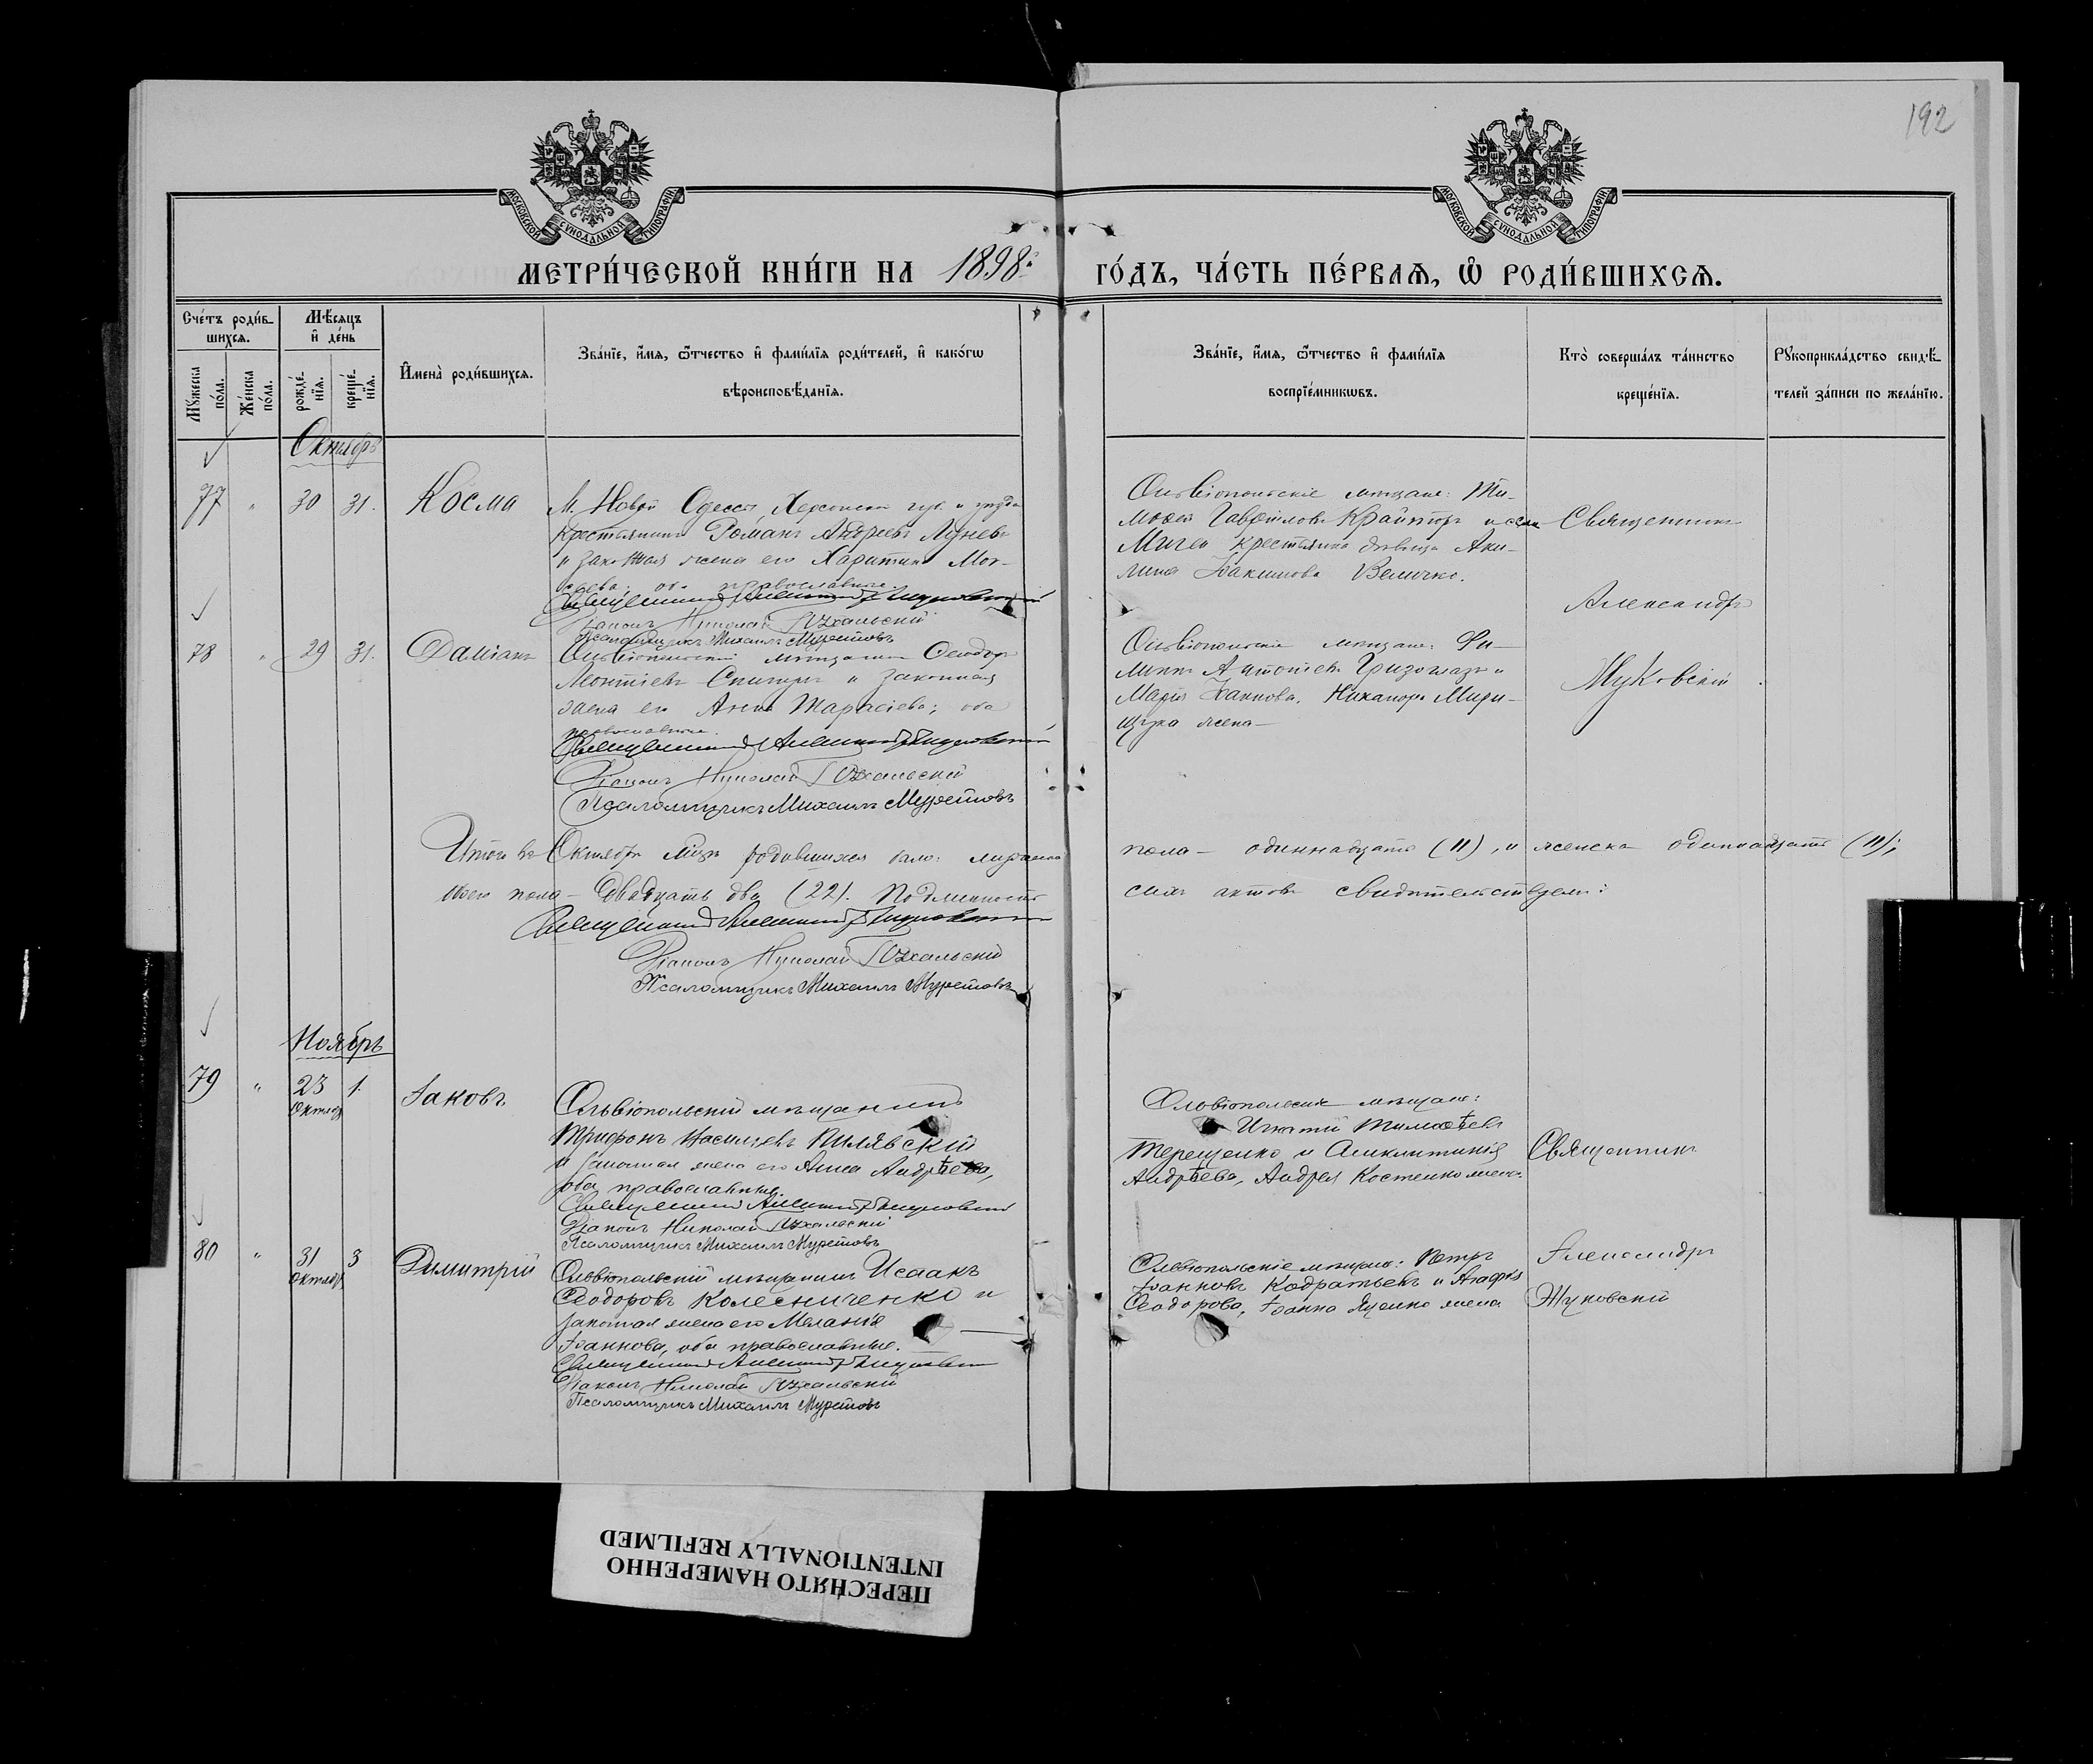 192
МОСКОВСКОЙ СУНОДАЛЬНОЙ ТИПОГРАФІИ
МОСКОВСКОЙ СУНОДАЛЬНОЙ ТИПОГРАФІИ
МЕТРИ́ЧЕСКОЙ КНИ́ГИ НА 1898й ГО́ДЪ, ЧА́СТЬ ПЕ́РВАѦ, Ѽ РОДИ́ВШИХСѦ.
Сче́тъ роди́в-
шихсѧ.
Мꙋ́жеска по́ла.
Же́нска по́ла.
Мѣ́сѧцъ
и҆ де́нь
рожде́-
нїѧ.
креще́-
нїѧ.
И҆мена̀ роди́вшихсѧ.
Зва́нїе, и҆́мѧ, ѻ҆́тчество и҆ фами́лїѧ роди́телей, и҆ како́гѡ
вѣроисповѣ́данїѧ.
Зва́нїе, и҆́мѧ, ѻ҆́тчество и҆ фами́лїѧ
воспрїе́мникѡвъ.
Кто̀ соверша́лъ та́инство
креще́нїѧ.
Рꙋкоприкла́дство свидѣ́-
телей за́писи по жела́нїю.
Октябрь
77 " 30 31. Косма
М. Новой Одессы, Херсонской губ. и уезда
крестьянинъ Романъ Андреевъ Луневъ
и законная жена его Харитина Мо-
оба православные.
Священникъ Александръ Жуковскій
Діаконъ Николай
Псаломщикъ Михаилъ Муретовъ
Ольвіопольскіе мещане: Ти-
мофей Гавріиловъ и села
Мигеи крестьянка девица Аки-
лина Іоакимова Величко.
Священникъ
Александръ
Жуковскій
78 " 29 31. Даміанъ
Ольвіопольскій мещанинъ Феодоръ
Леонтіевъ и законная
жена его Анна Тарасіева; оба
православные.
Священникъ Александръ Жуковскій
Діаконъ Николай
Псаломщикъ Михаилъ Муретовъ
Ольвіопольскіе мещане: Фи-
липпъ Антоніевъ Гризоглазъ и
Марія Іоаннова, Никанора Мири-
жена
Итого въ Октябре м-це родившихся было: мужеска пола - одиннадцать (11), и женска одиннадцать (11);
всего пола - двадцать два (22). Подлинность сихъ актовъ свидетельствуемъ:
Священникъ Александръ Жуковскій
Діаконъ Николай
Псаломщикъ Михаилъ Муретовъ
Ноябрь
79 " 23 1. Іаковъ
Октяб
Ольвіопольскій мѣщанинъ
Трифонъ Василіевъ Килявскій
и законная жена его Анна Андрѣева,
оба православные.
Священникъ Александръ Жуковскій
Діаконъ Николай
Псаломщикъ Михаилъ Муретовъ
Ольвіопольскіе мѣщане:
Игнатій Тимоѳѣевъ
Терещенко и Синклитикія
Андрѣева, Андрея Костенко жена.
Священникъ
80 " 31 3 Димитрій
Октяб
Ольвіопольскій мѣщанинъ Исаакъ
Феодоровъ Колесниченко и
законная жена его Меланія
Іоаннова, оба православные.
Священникъ Александръ Жуковскій
Діаконъ Николай
Псаломщикъ Михаилъ Муретовъ
Ольвіопольскіе мѣщане: Петръ
Іоанновъ Кодратьевъ и Агафія
Феодорова, Іоанна Яценко жена
Александръ
Жуковскій
ПЕРЕСНЯТО НАМЕРЕННО
INTENTIONALLY REFILMED